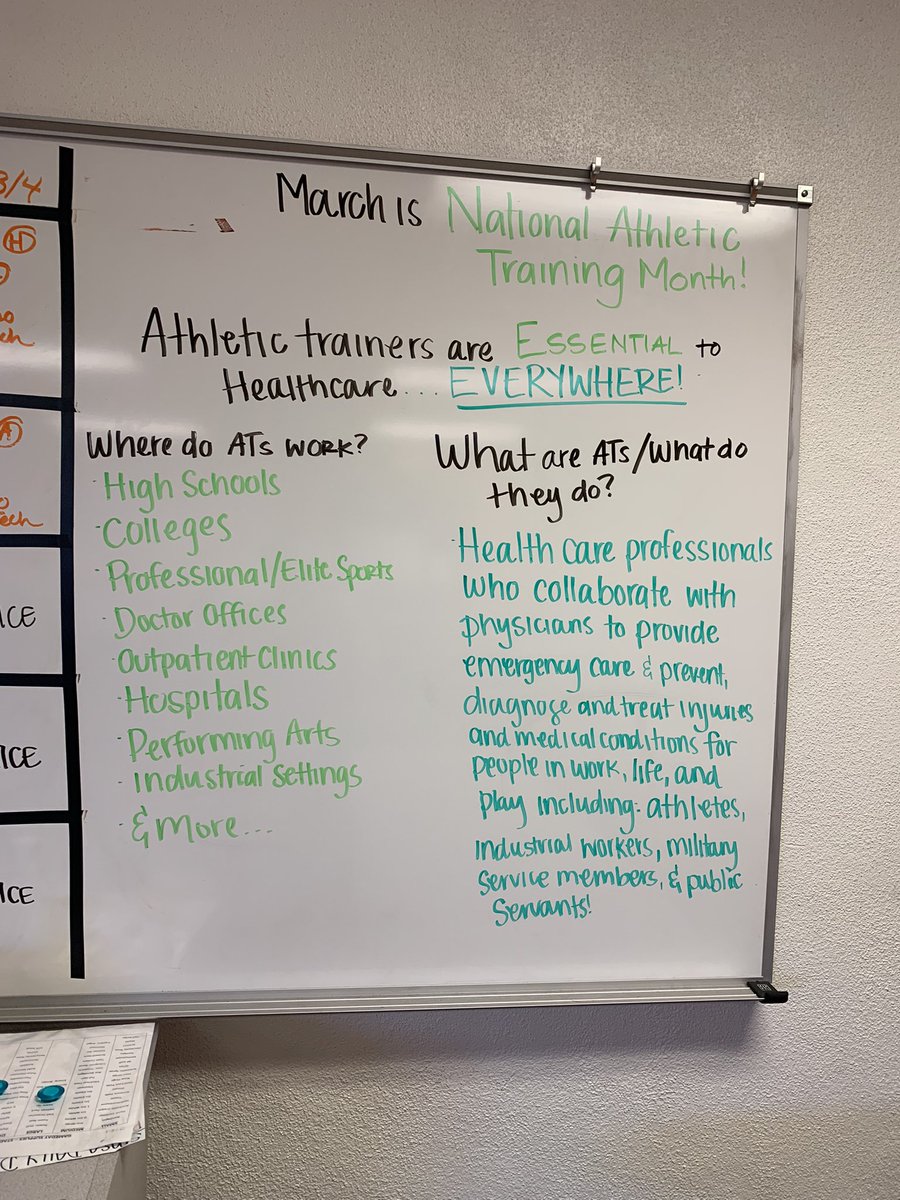 3/4
H
ech
A
ech
ICE
ICE
ICE
March is National Athletic
Training Month!
Athletic trainers are ESSENTIAL to
Healthcare... EVERYWHERE!
Where do ATs work?
· High Schools
· Colleges
· Professional/Elite Sports
· Doctor Offices
· Outpatient Clinics
· Hospitals
· Performing Arts
· Industrial Settings
· & More...
What are ATs/What do
they do?
· Health care professionals
who collaborate with
physicians to provide
emergency care & prevent,
diagnose and treat injuries
and medical conditions for
people in work, life, and
play including: athletes,
industrial workers, military
service members, & public
servants!